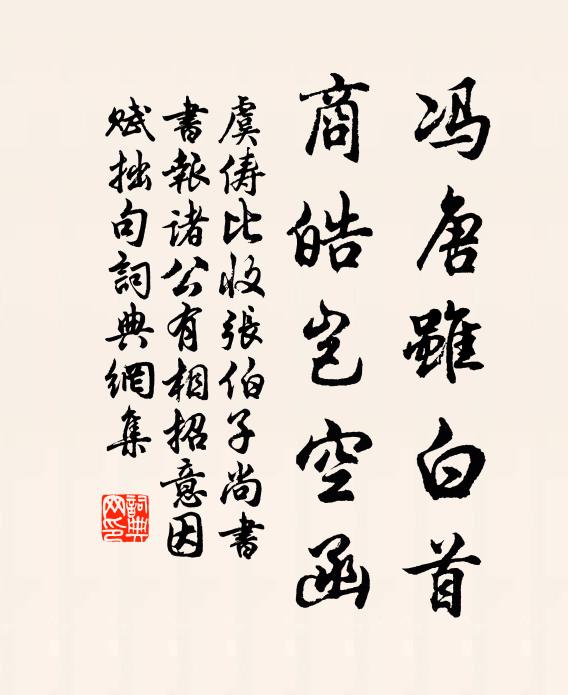 冯唐雖白首
商皓岂空函
虞儔比收張伯子尚書
書報诸公有相招意因
赋拙句詞典網集
詞典網印